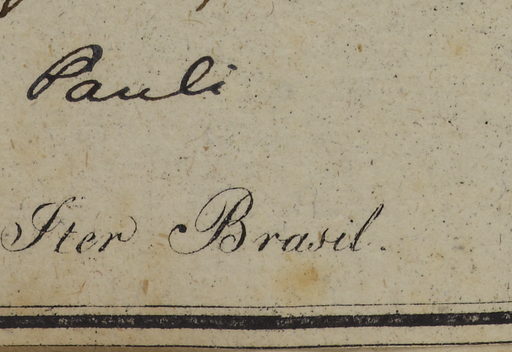 Pauli
Iter Brasil.